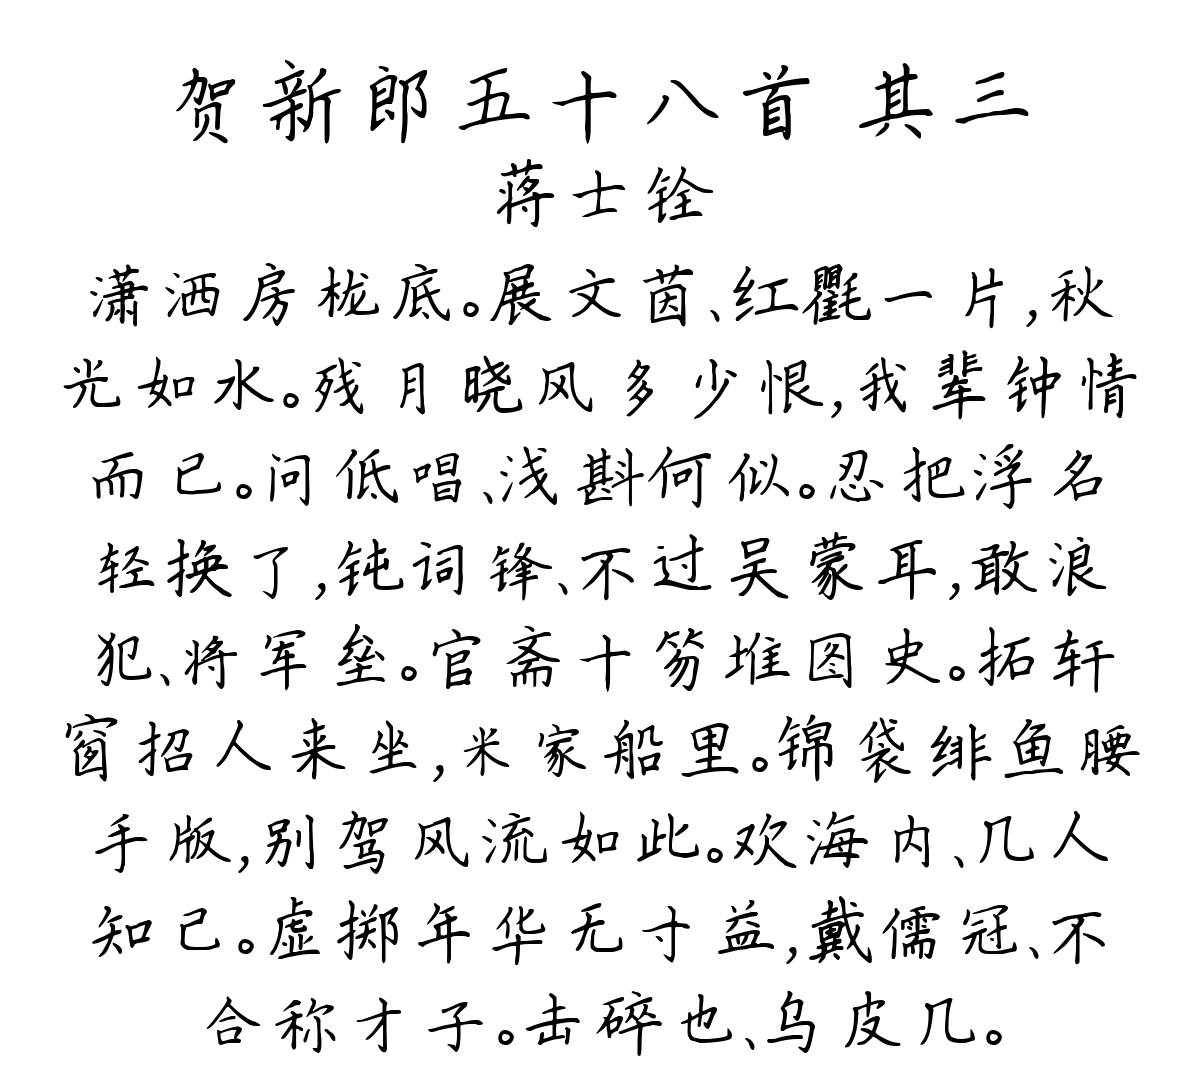 贺新郎五十八首 其三
蒋士铨
潇洒房栊底。展文茵、红氍一片,秋
光如水。残月晓风多少恨,我辈钟情
而已。问低唱、浅斟何似。忍把浮名
轻换了,钝词锋、不过吴蒙耳,敢浪
犯、将军垒。官斋十笏堆图史。拓轩
窗招人来坐,米家船里。锦袋绯鱼腰
手版,别驾风流如此。欢海内、几人
知己。虚掷年华无寸益,戴儒冠、不
合称才子。击碎也、乌皮几。